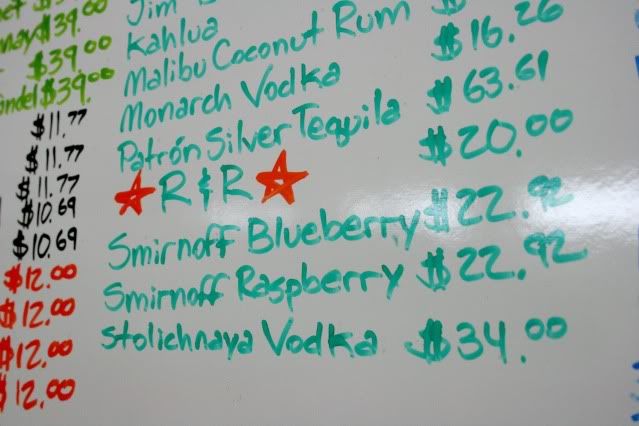 $39.00
$39.00
$39.00
$11.77
$11.77
$11.77
$10.69
$10.69
$12.00
$12.00
$12.00
$12.00
Jim B
Kahlua
Malibu Coconut Rum $
Monarch Vodka $16.26
Patrón Silver Tequila $63.61
R & R $20.00
Smirnoff Blueberry $22.92
Smirnoff Raspberry $22.92
Stolichnaya Vodka $34.00